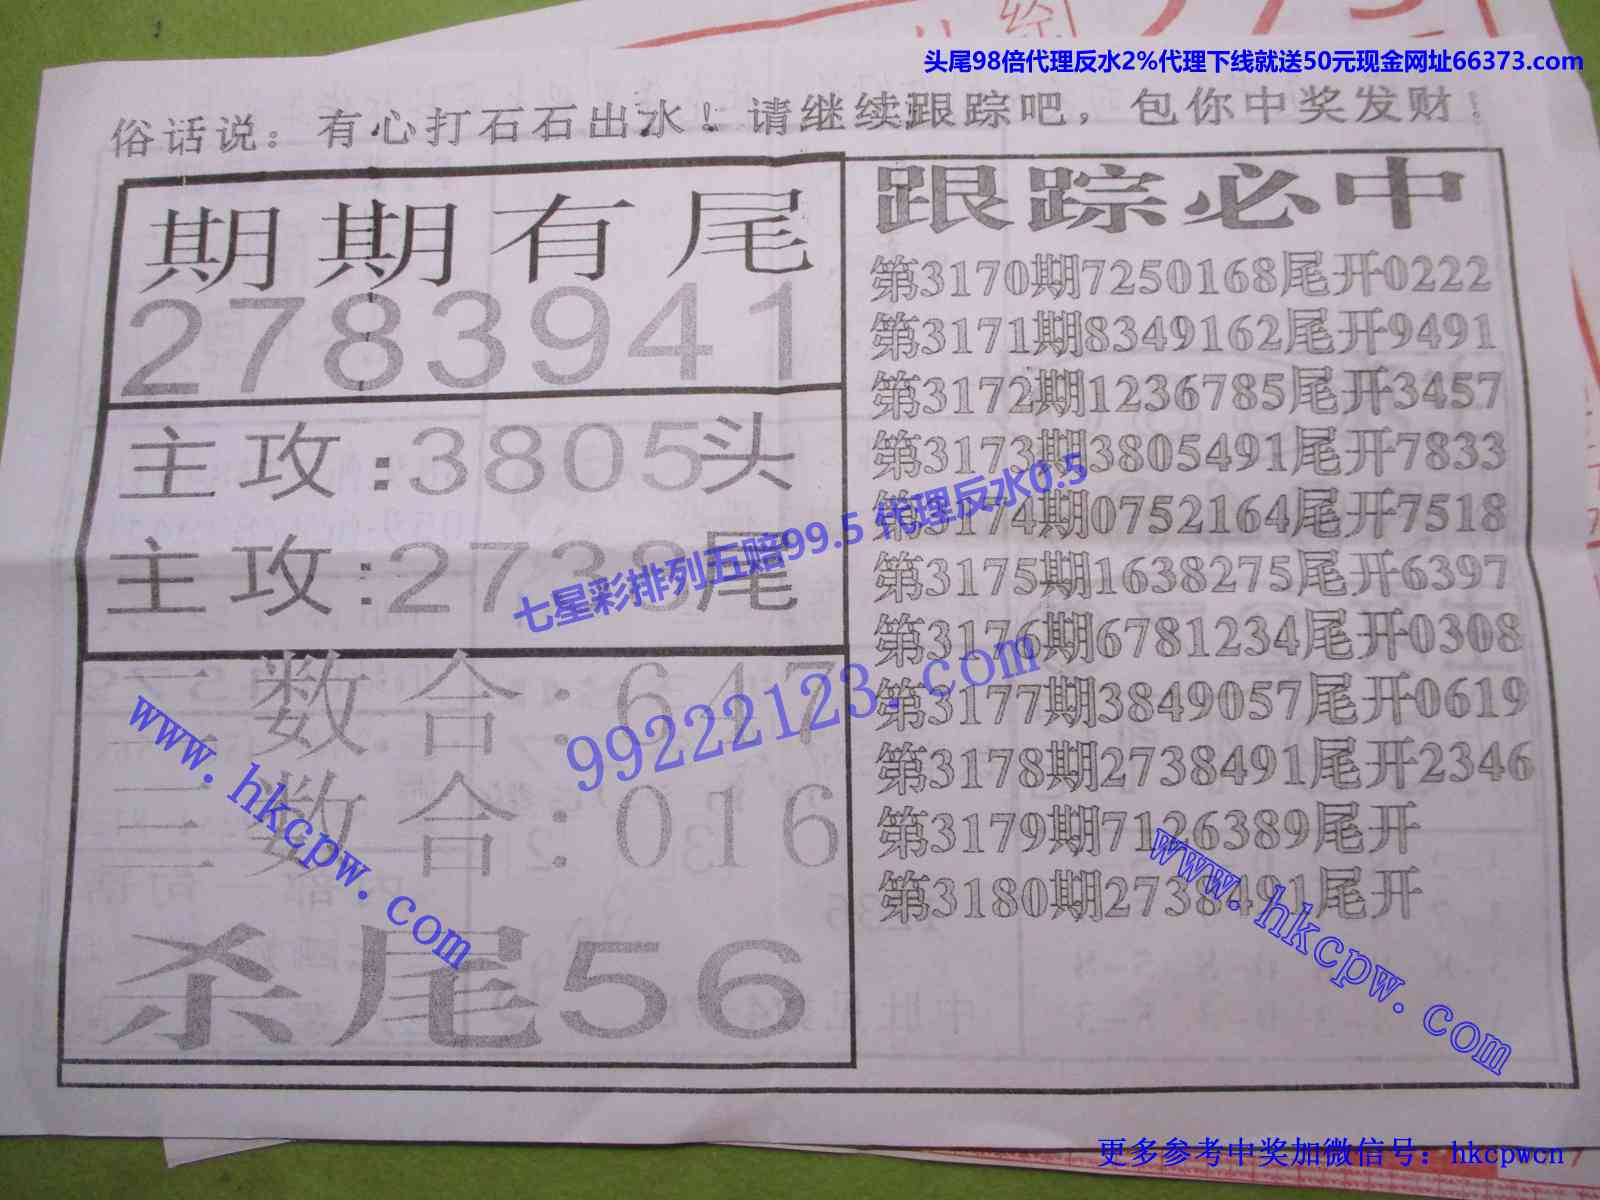 头尾98倍代理反水2%代理下线就送50元现金网址66373.com
俗话说：有心打石石出水！请继续跟踪吧，包你中奖发财！
期期有尾
2783941
主攻:3805头
主攻:2738尾
二数合:647
三数合:016
杀尾56
跟踪必中
第3170期7250168尾开0222
第3171期8349162尾开9491
第3172期1236785尾开3457
第3173期3805491尾开7833
第3174期0752164尾开7518
第3175期1638275尾开6397
第3176期6781234尾开0308
第3177期3849057尾开0619
第3178期2738491尾开2346
第3179期7126389尾开
第3180期2738491尾开
七星彩排列五赔99.5 代理反水0.5
99222123.com
www.hkcpw.com
www.hkcpw.com
更多参考中奖加微信号：hkcpwcn